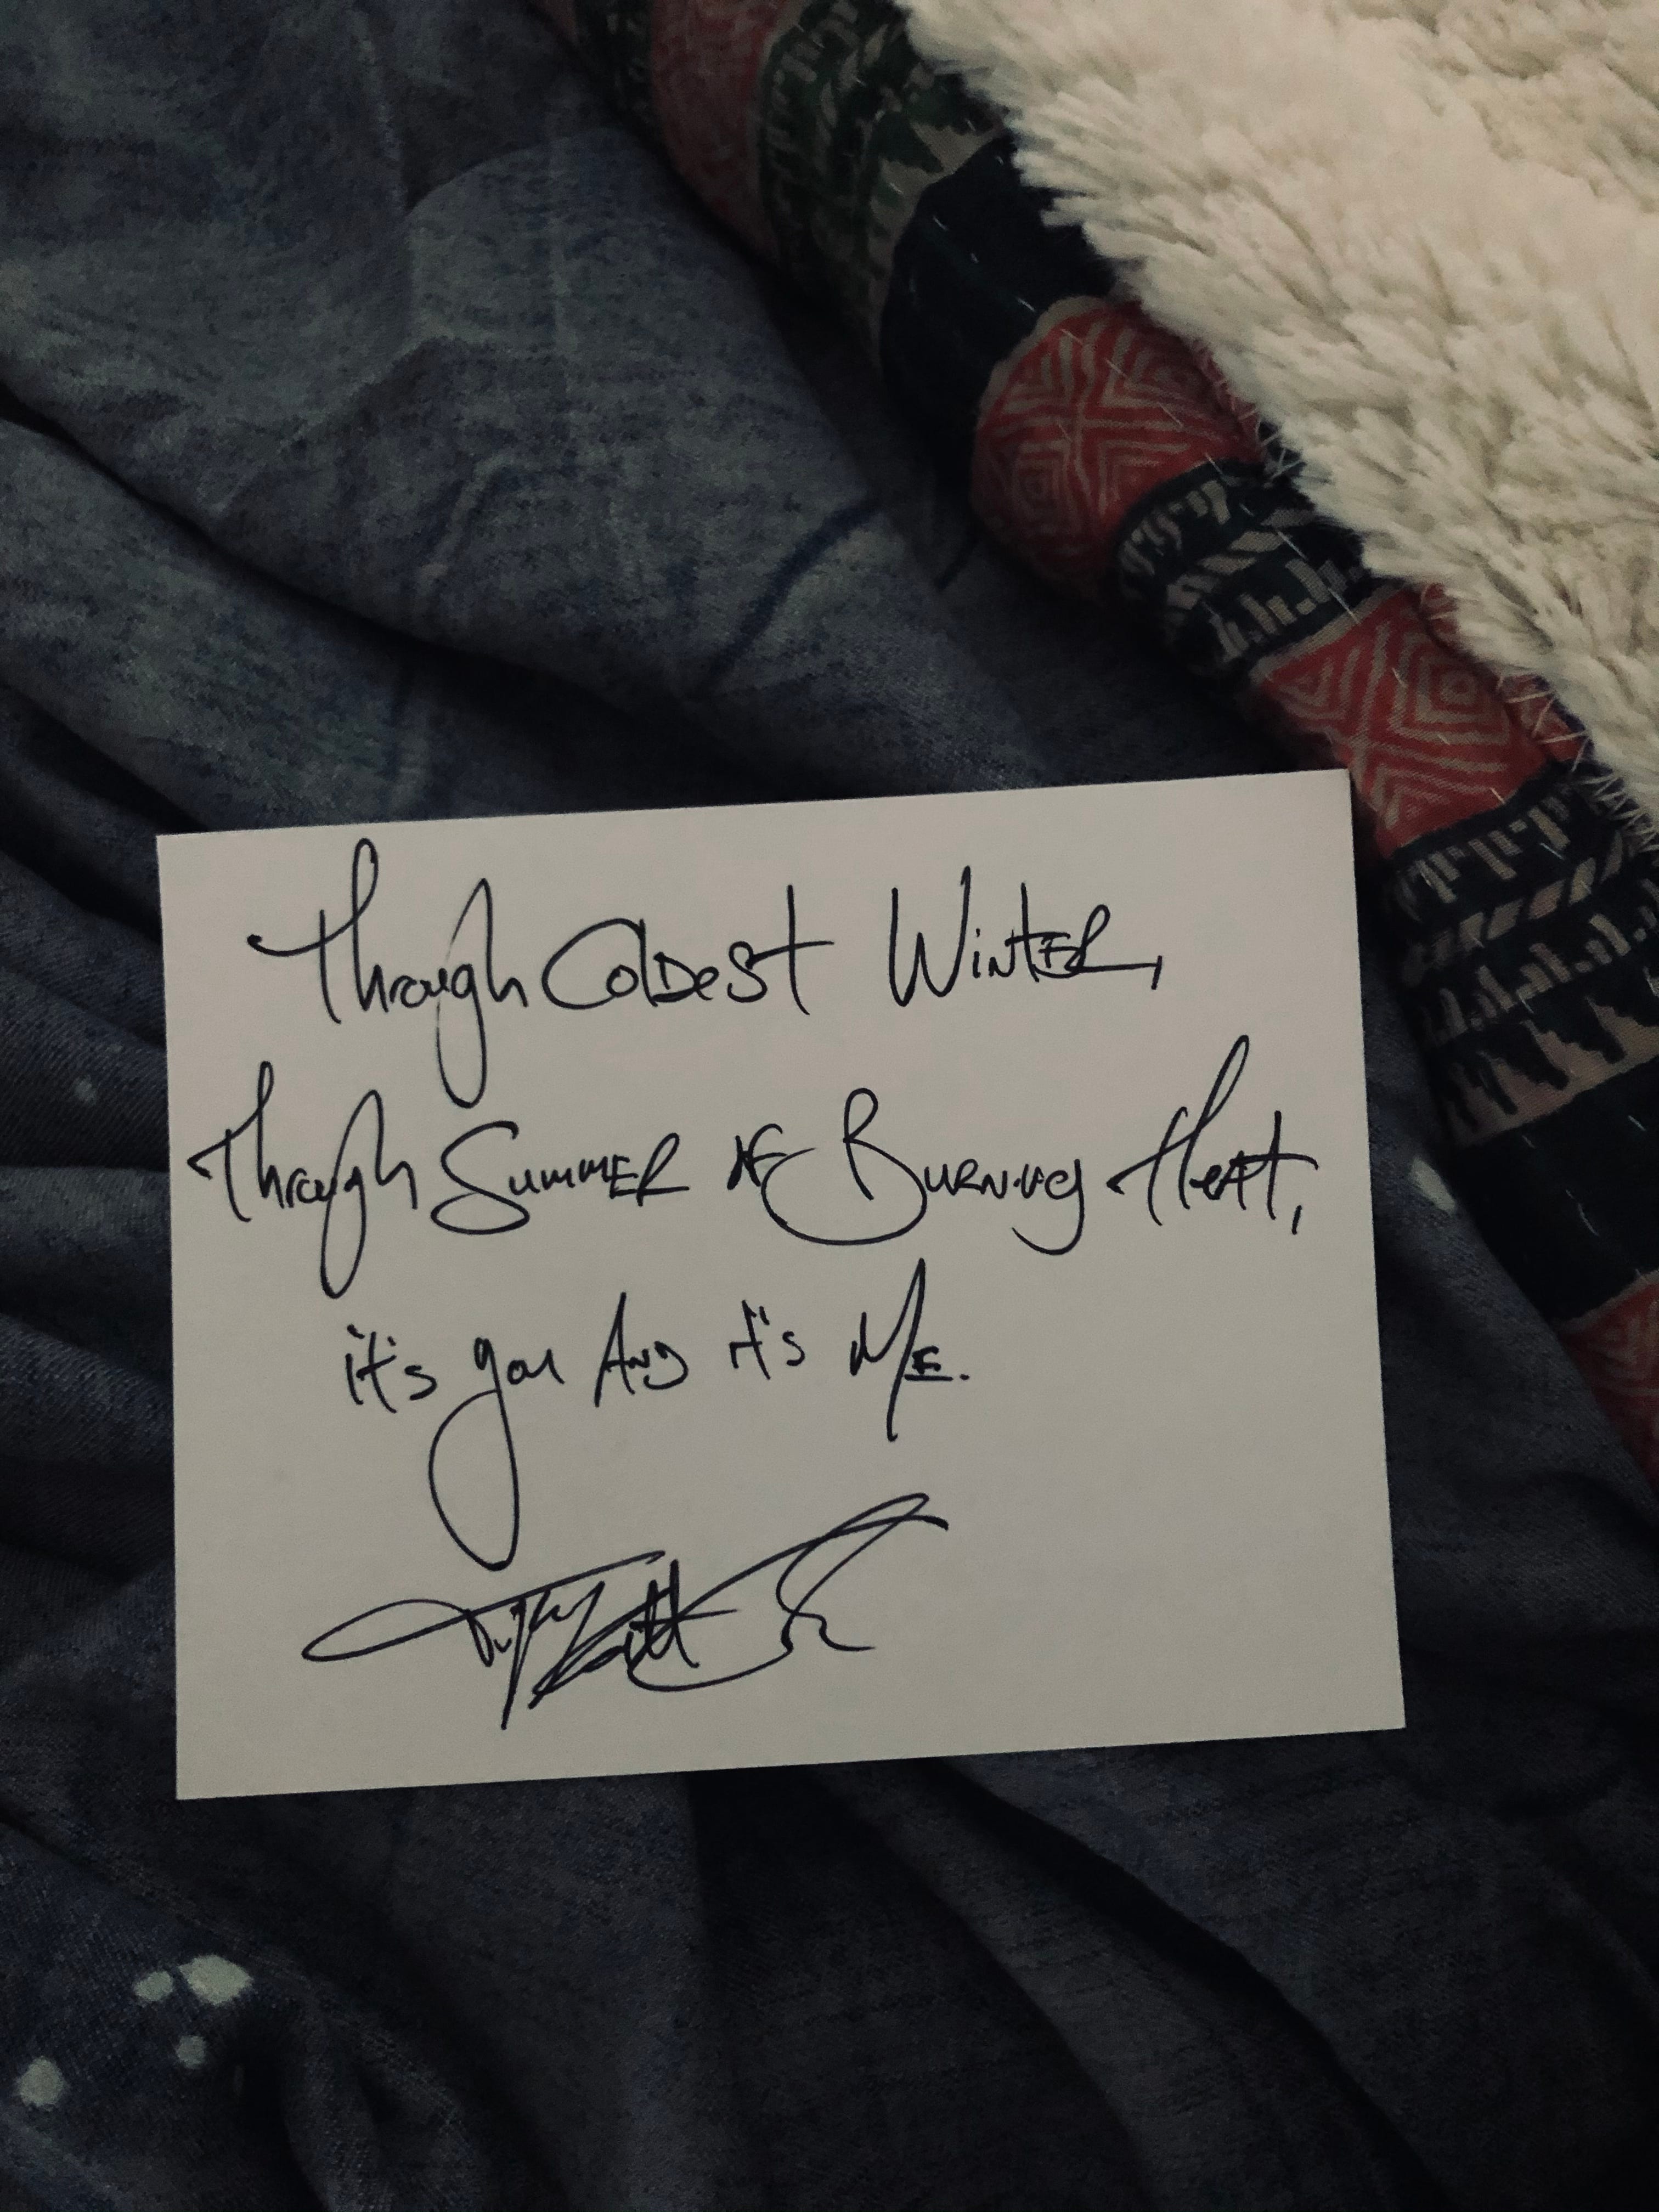 Through Coldest Winter,
Through Summer of Burning Heat,
it's you And it's Me.